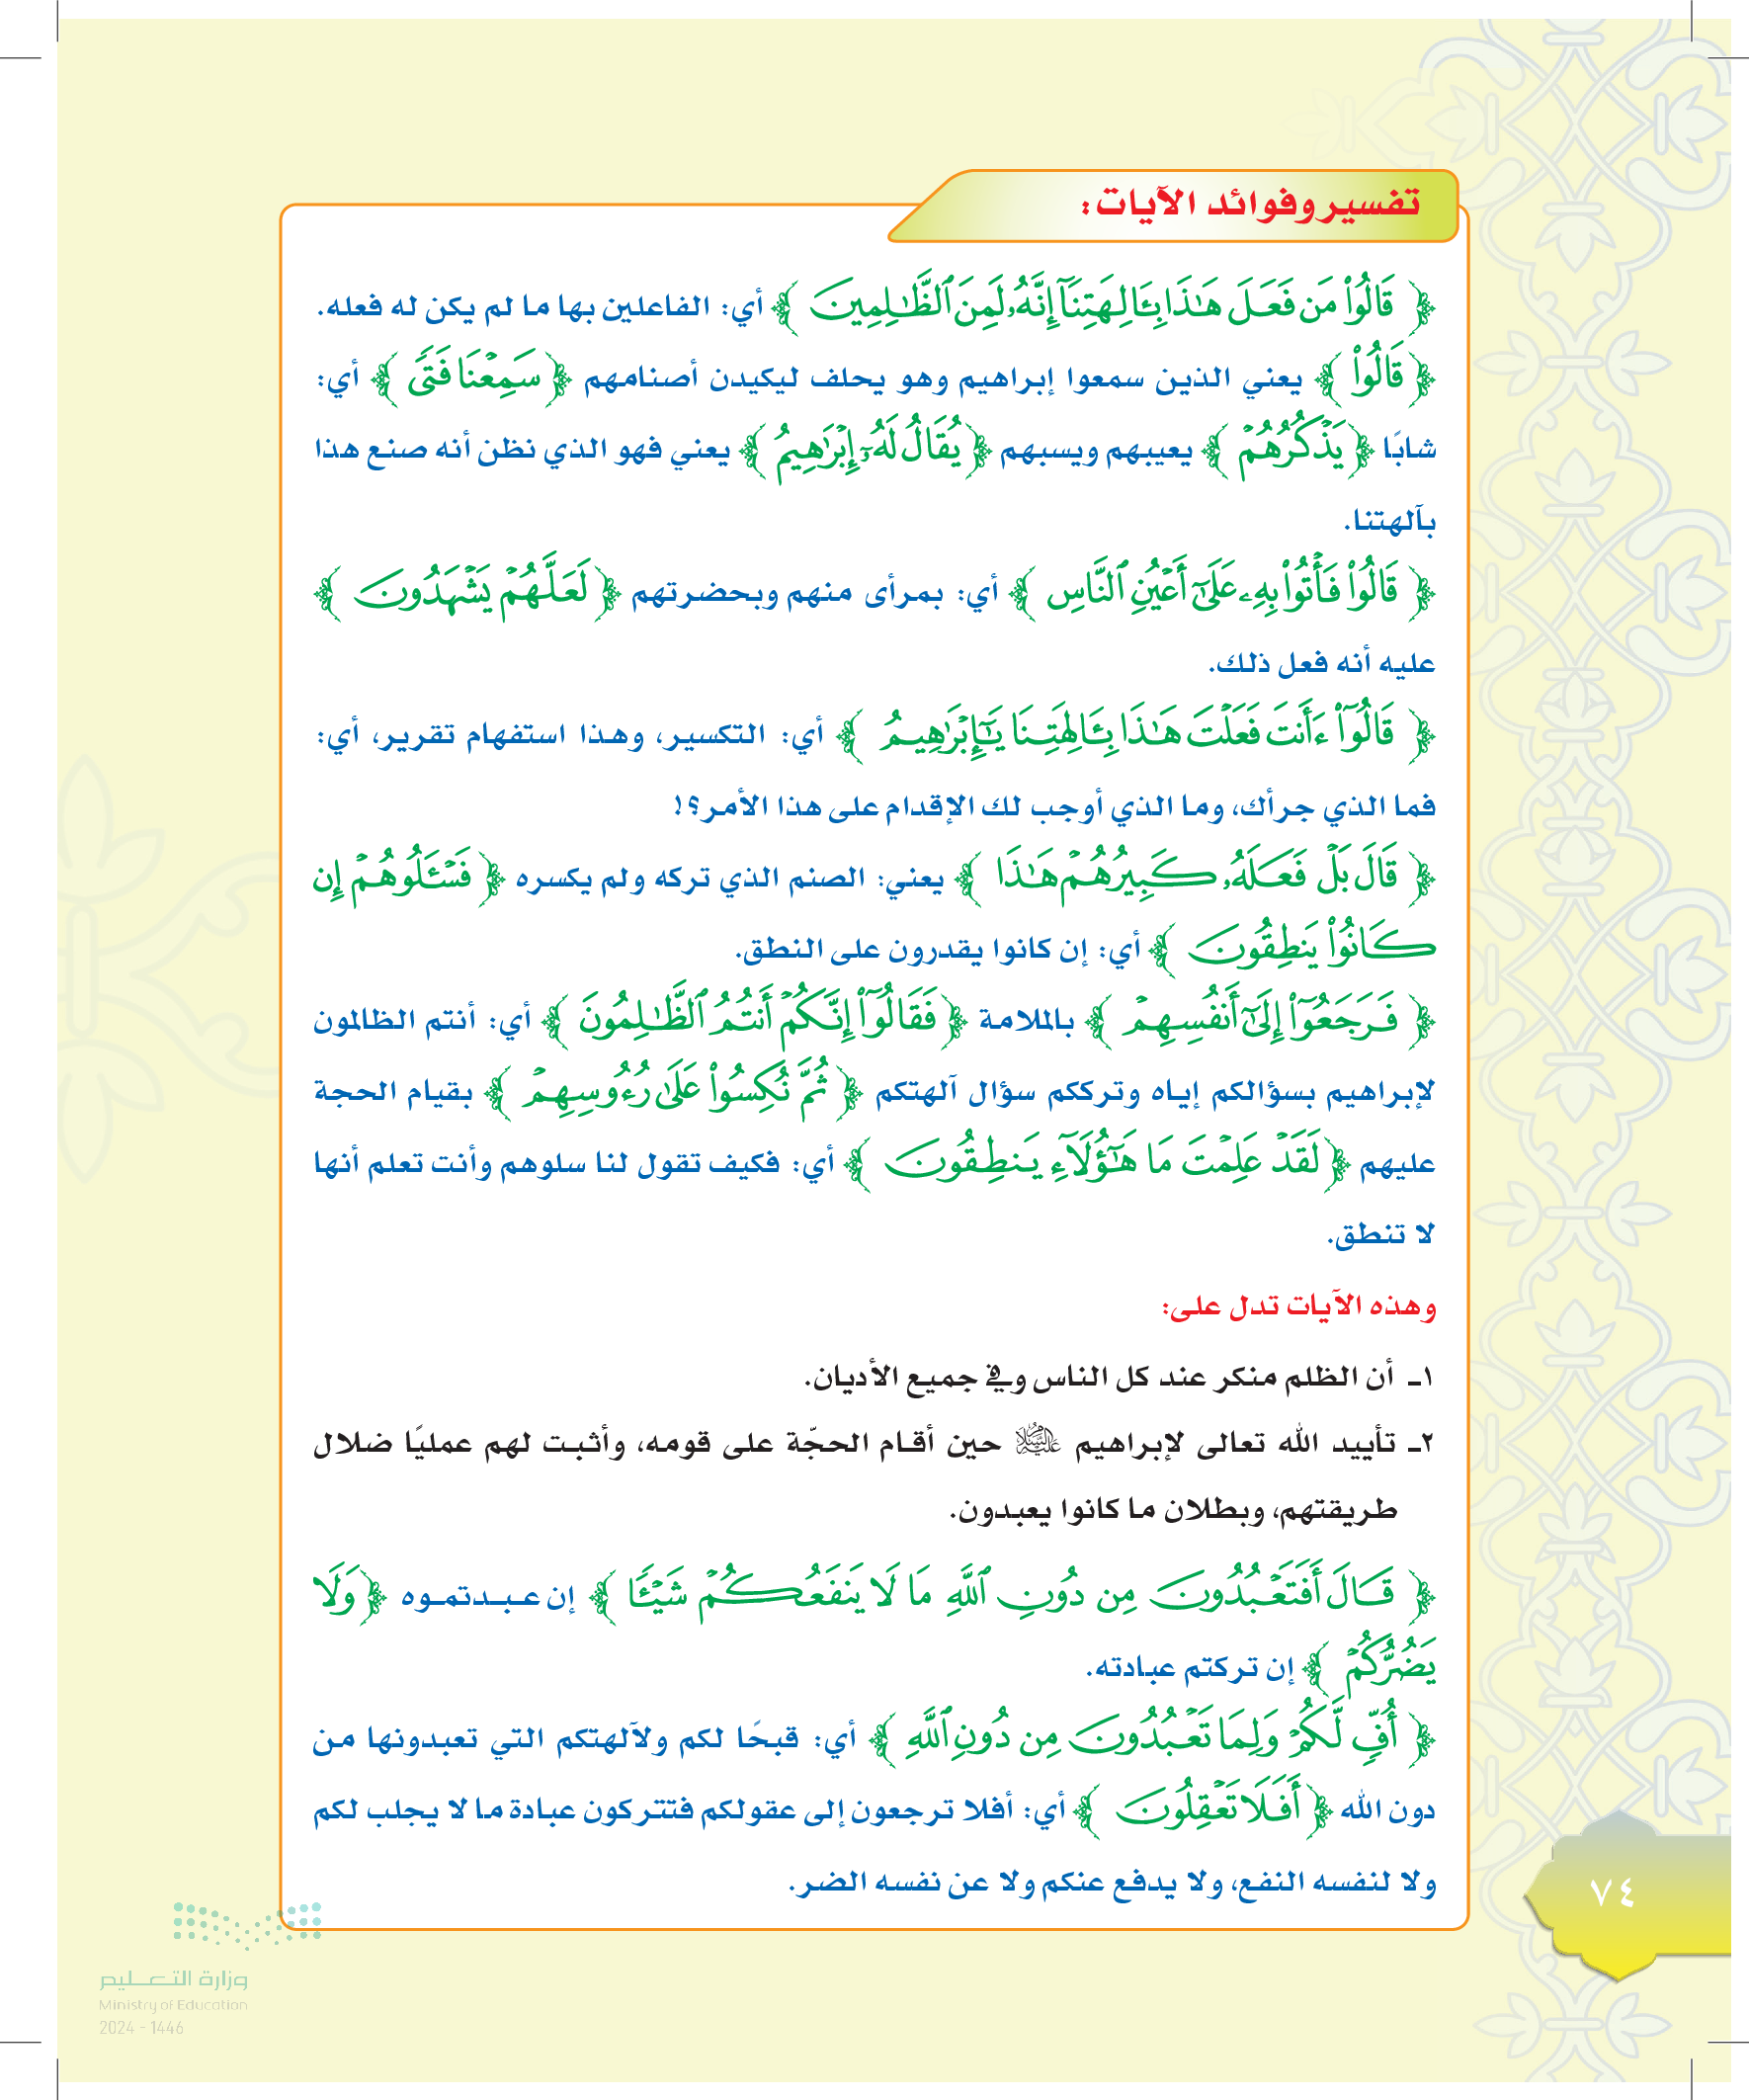 تفسير وفوائد الآيات:
﴿ قَالُوا۟ مَن فَعَلَ هَـٰذَا بِـَٔالِهَتِنَآ إِنَّهُۥ لَمِنَ ٱلظَّـٰلِمِينَ ﴾ أي: الفاعلين بها ما لم يكن له فعله.
﴿ قَالُوا۟ ﴾ يعني الذين سمعوا إبراهيم وهو يحلف ليكيدن أصنامهم ﴿ سَمِعْنَا فَتًى ﴾ أي:
شابًا ﴿ يَذْكُرُهُمْ ﴾ يعيبهم ويسبهم ﴿ يُقَالُ لَهُۥٓ إِبْرَٰهِيمُ ﴾ يعني فهو الذي نظن أنه صنع هذا
بآلهتنا.
﴿ قَالُوا۟ فَأْتُوا۟ بِهِۦ عَلَىٰٓ أَعْيُنِ ٱلنَّاسِ ﴾ أي: بمرأى منهم وبحضرتهم ﴿ لَعَلَّهُمْ يَشْهَدُونَ ﴾
عليه أنه فعل ذلك.
﴿ قَالُوٓا۟ ءَأَنتَ فَعَلْتَ هَـٰذَا بِـَٔالِهَتِنَا يَـٰٓإِبْرَٰهِيمُ ﴾ أي: التكسير، وهذا استفهام تقرير، أي:
فما الذي جرأك، وما الذي أوجب لك الإقدام على هذا الأمر؟!
﴿ قَالَ بَلْ فَعَلَهُۥ كَبِيرُهُمْ هَـٰذَا ﴾ يعني: الصنم الذي تركه ولم يكسره ﴿ فَسْـَٔلُوهُمْ إِن
كَانُوا۟ يَنطِقُونَ ﴾ أي: إن كانوا يقدرون على النطق.
﴿ فَرَجَعُوٓا۟ إِلَىٰٓ أَنفُسِهِمْ ﴾ بالملامة ﴿ فَقَالُوٓا۟ إِنَّكُمْ أَنتُمُ ٱلظَّـٰلِمُونَ ﴾ أي: أنتم الظالمون
لإبراهيم بسؤالكم إياه وترككم سؤال آلهتكم ﴿ ثُمَّ نُكِسُوا۟ عَلَىٰ رُءُوسِهِمْ ﴾ بقيام الحجة
عليهم ﴿ لَقَدْ عَلِمْتَ مَا هَـٰٓؤُلَآءِ يَنطِقُونَ ﴾ أي: فكيف تقول لنا سلوهم وأنت تعلم أنها
لا تنطق.
وهذه الآيات تدل على:
١ـ أن الظلم منكر عند كل الناس وفي جميع الأديان.
٢ـ تأييد الله تعالى لإبراهيم عليه السلام حين أقام الحجّة على قومه، وأثبت لهم عمليًا ضلال
طريقتهم، وبطلان ما كانوا يعبدون.
﴿ قَالَ أَفَتَعْبُدُونَ مِن دُونِ ٱللَّهِ مَا لَا يَنفَعُكُمْ شَيْـًٔا ﴾ إن عبدتموه ﴿ وَلَا
يَضُرُّكُمْ ﴾ إن تركتم عبادته.
﴿ أُفٍّ لَّكُمْ وَلِمَا تَعْبُدُونَ مِن دُونِ ٱللَّهِ ﴾ أي: قبحًا لكم ولآلهتكم التي تعبدونها من
دون الله ﴿ أَفَلَا تَعْقِلُونَ ﴾ أي: أفلا ترجعون إلى عقولكم فتتركون عبادة ما لا يجلب لكم
ولا لنفسه النفع، ولا يدفع عنكم ولا عن نفسه الضر.
٧٤
وزارة التعليم
Ministry of Education
2024 - 1446